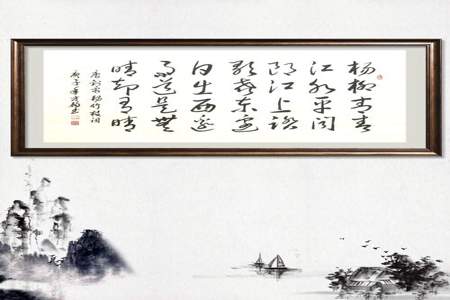 杨柳青青
江水平闻
郎江上踏
歌声东边
日出西边
雨道是無
晴却有晴
唐刘禹锡竹枝词
庚子年